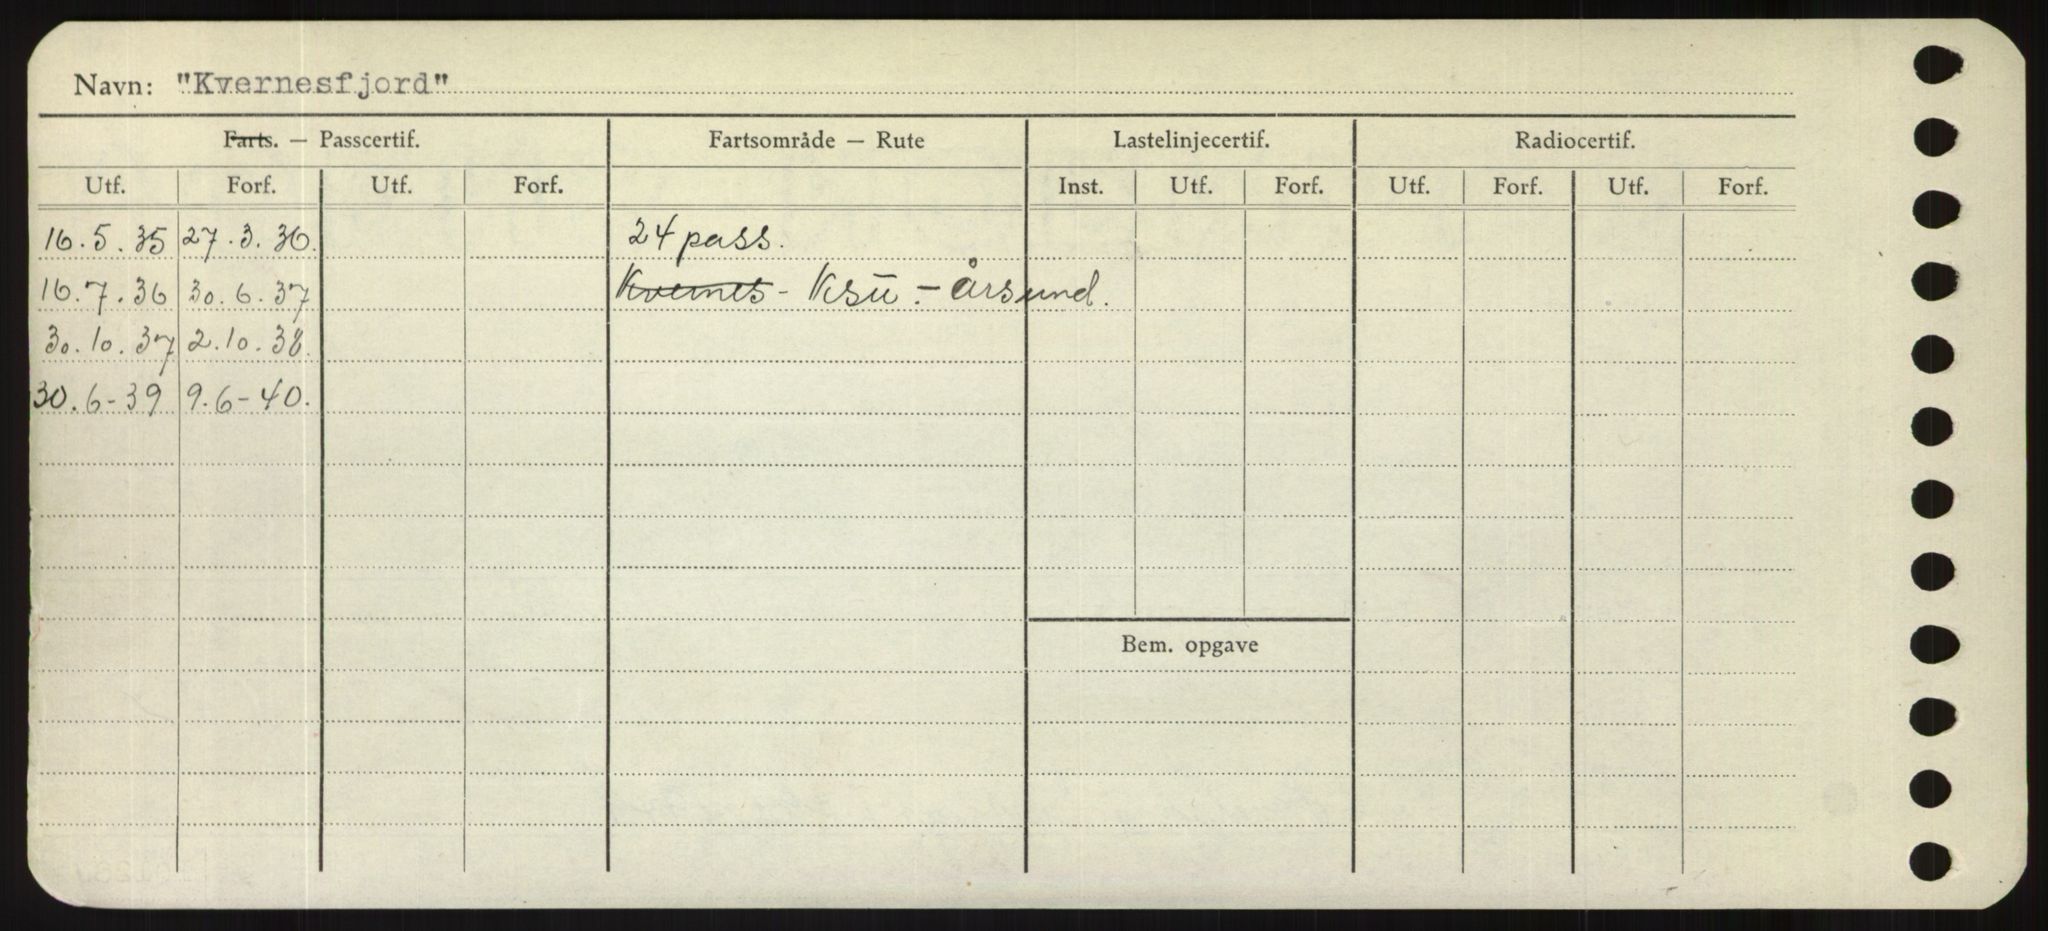 Navn: "Kvernesfjord"
Farts. — Passcertif. Fartsområde — Rute Lastelinjecertif. Radiocertif.
Utf. Forf. Utf. Forf. Inst. Utf. Forf. Utf. Forf. Utf. Forf.
16.5.35 27.3.36. 24 pass.
16.7.36 30.6.37 Kvernes - Ksu. - Årsund.
30.10.37 2.10.38.
30.6-39 9.6-40.
Bem. opgave